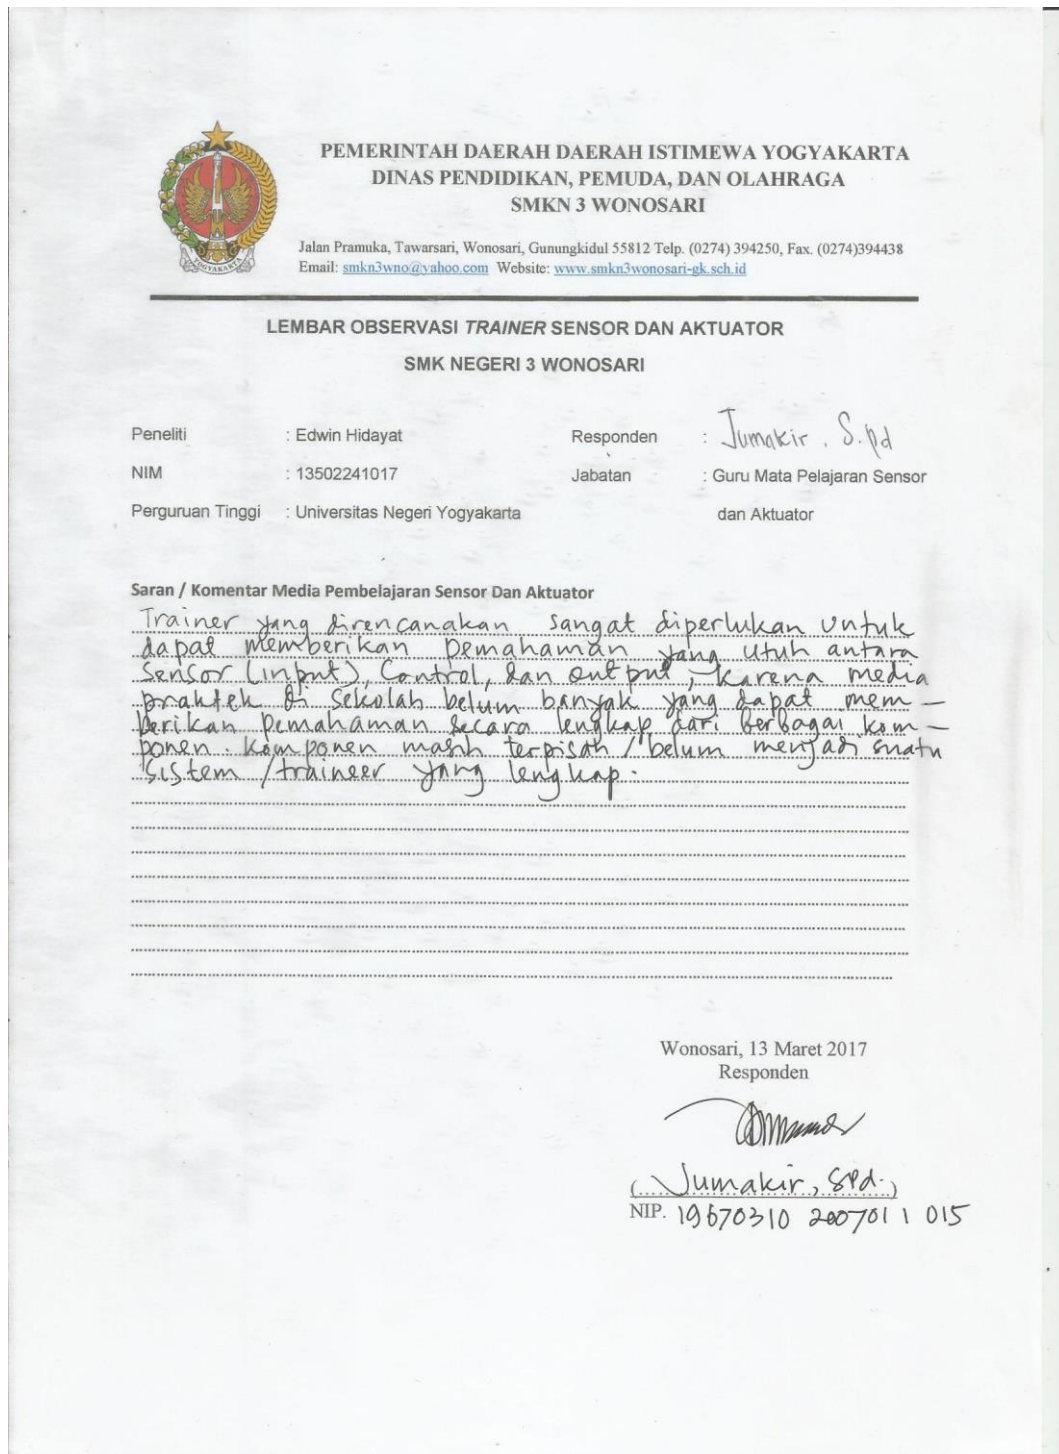 YOGYAKARTA
PEMERINTAH DAERAH DAERAH ISTIMEWA YOGYAKARTA
DINAS PENDIDIKAN, PEMUDA, DAN OLAHRAGA
SMKN 3 WONOSARI
Jalan Pramuka, Tawarsari, Wonosari, Gunungkidul 55812 Telp. (0274) 394250, Fax. (0274)394438
Email: smkn3wno@yahoo.com Website: www.smkn3wonosari-gk.sch.id
LEMBAR OBSERVASI TRAINER SENSOR DAN AKTUATOR
SMK NEGERI 3 WONOSARI
Peneliti : Edwin Hidayat Responden : Jumakir, S.pd
NIM : 13502241017 Jabatan : Guru Mata Pelajaran Sensor
Perguruan Tinggi : Universitas Negeri Yogyakarta dan Aktuator
Saran / Komentar Media Pembelajaran Sensor Dan Aktuator
Trainer yang direncanakan sangat diperlukan untuk
dapat memberikan pemahaman yang utuh antara
Sensor (input), Control, dan output, karena media
praktek di sekolah belum banyak yang dapat mem-
berikan pemahaman secara lengkap dari berbagai kom-
ponen. Komponen masih terpisah / belum menjadi suatu
sistem / traineer yang lengkap.
Wonosari, 13 Maret 2017
Responden
(Jumakir, SPd.)
NIP. 19670310 200701 1 015